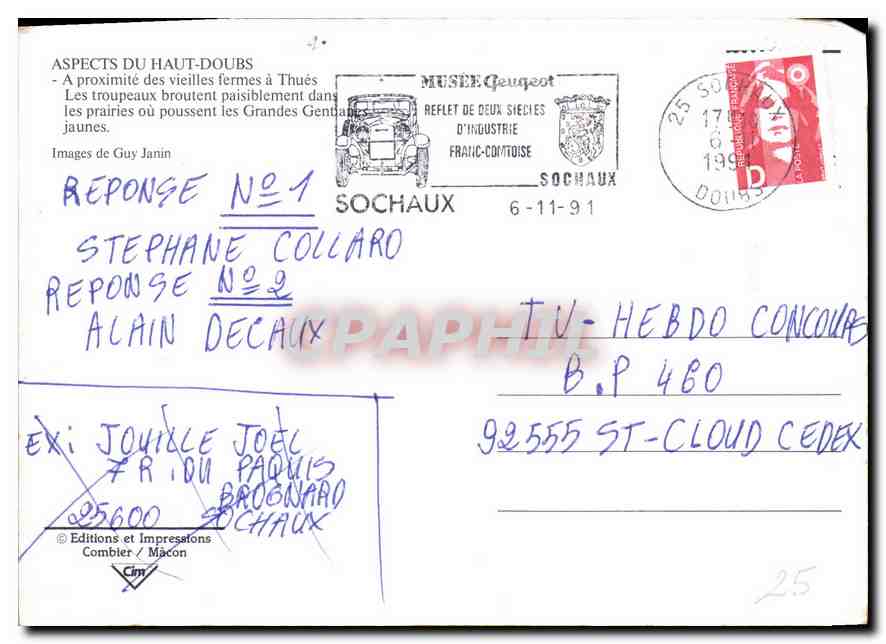 ASPECTS DU HAUT-DOUBS
- A proximité des vieilles fermes à Thués
Les troupeaux broutent paisiblement dans
les prairies où poussent les Grandes Gentianes
jaunes.
Images de Guy Janin
MUSÉE Peugeot
REFLET DE DEUX SIECLES
D'INDUSTRIE
FRANC-COMTOISE
SOCHAUX
SOCHAUX
6-11-91
25 SOCHAUX
17H
6
1991
DOUBS
REPUBLIQUE FRANÇAISE
LA POSTE
D
REPONSE Nº1
STEPHANE COLLARO
REPONSE Nº2
ALAIN DECAUX
CPAPHIL
TV-HEBDO CONCOURS
B.P 460
92555 ST-CLOUD CEDEX
EX: JOUILLE JOEL
7 R. DU PAQUIS
BROGNARD
25600 SOCHAUX
© Editions et Impressions
Combier / Mâcon
Cim
25